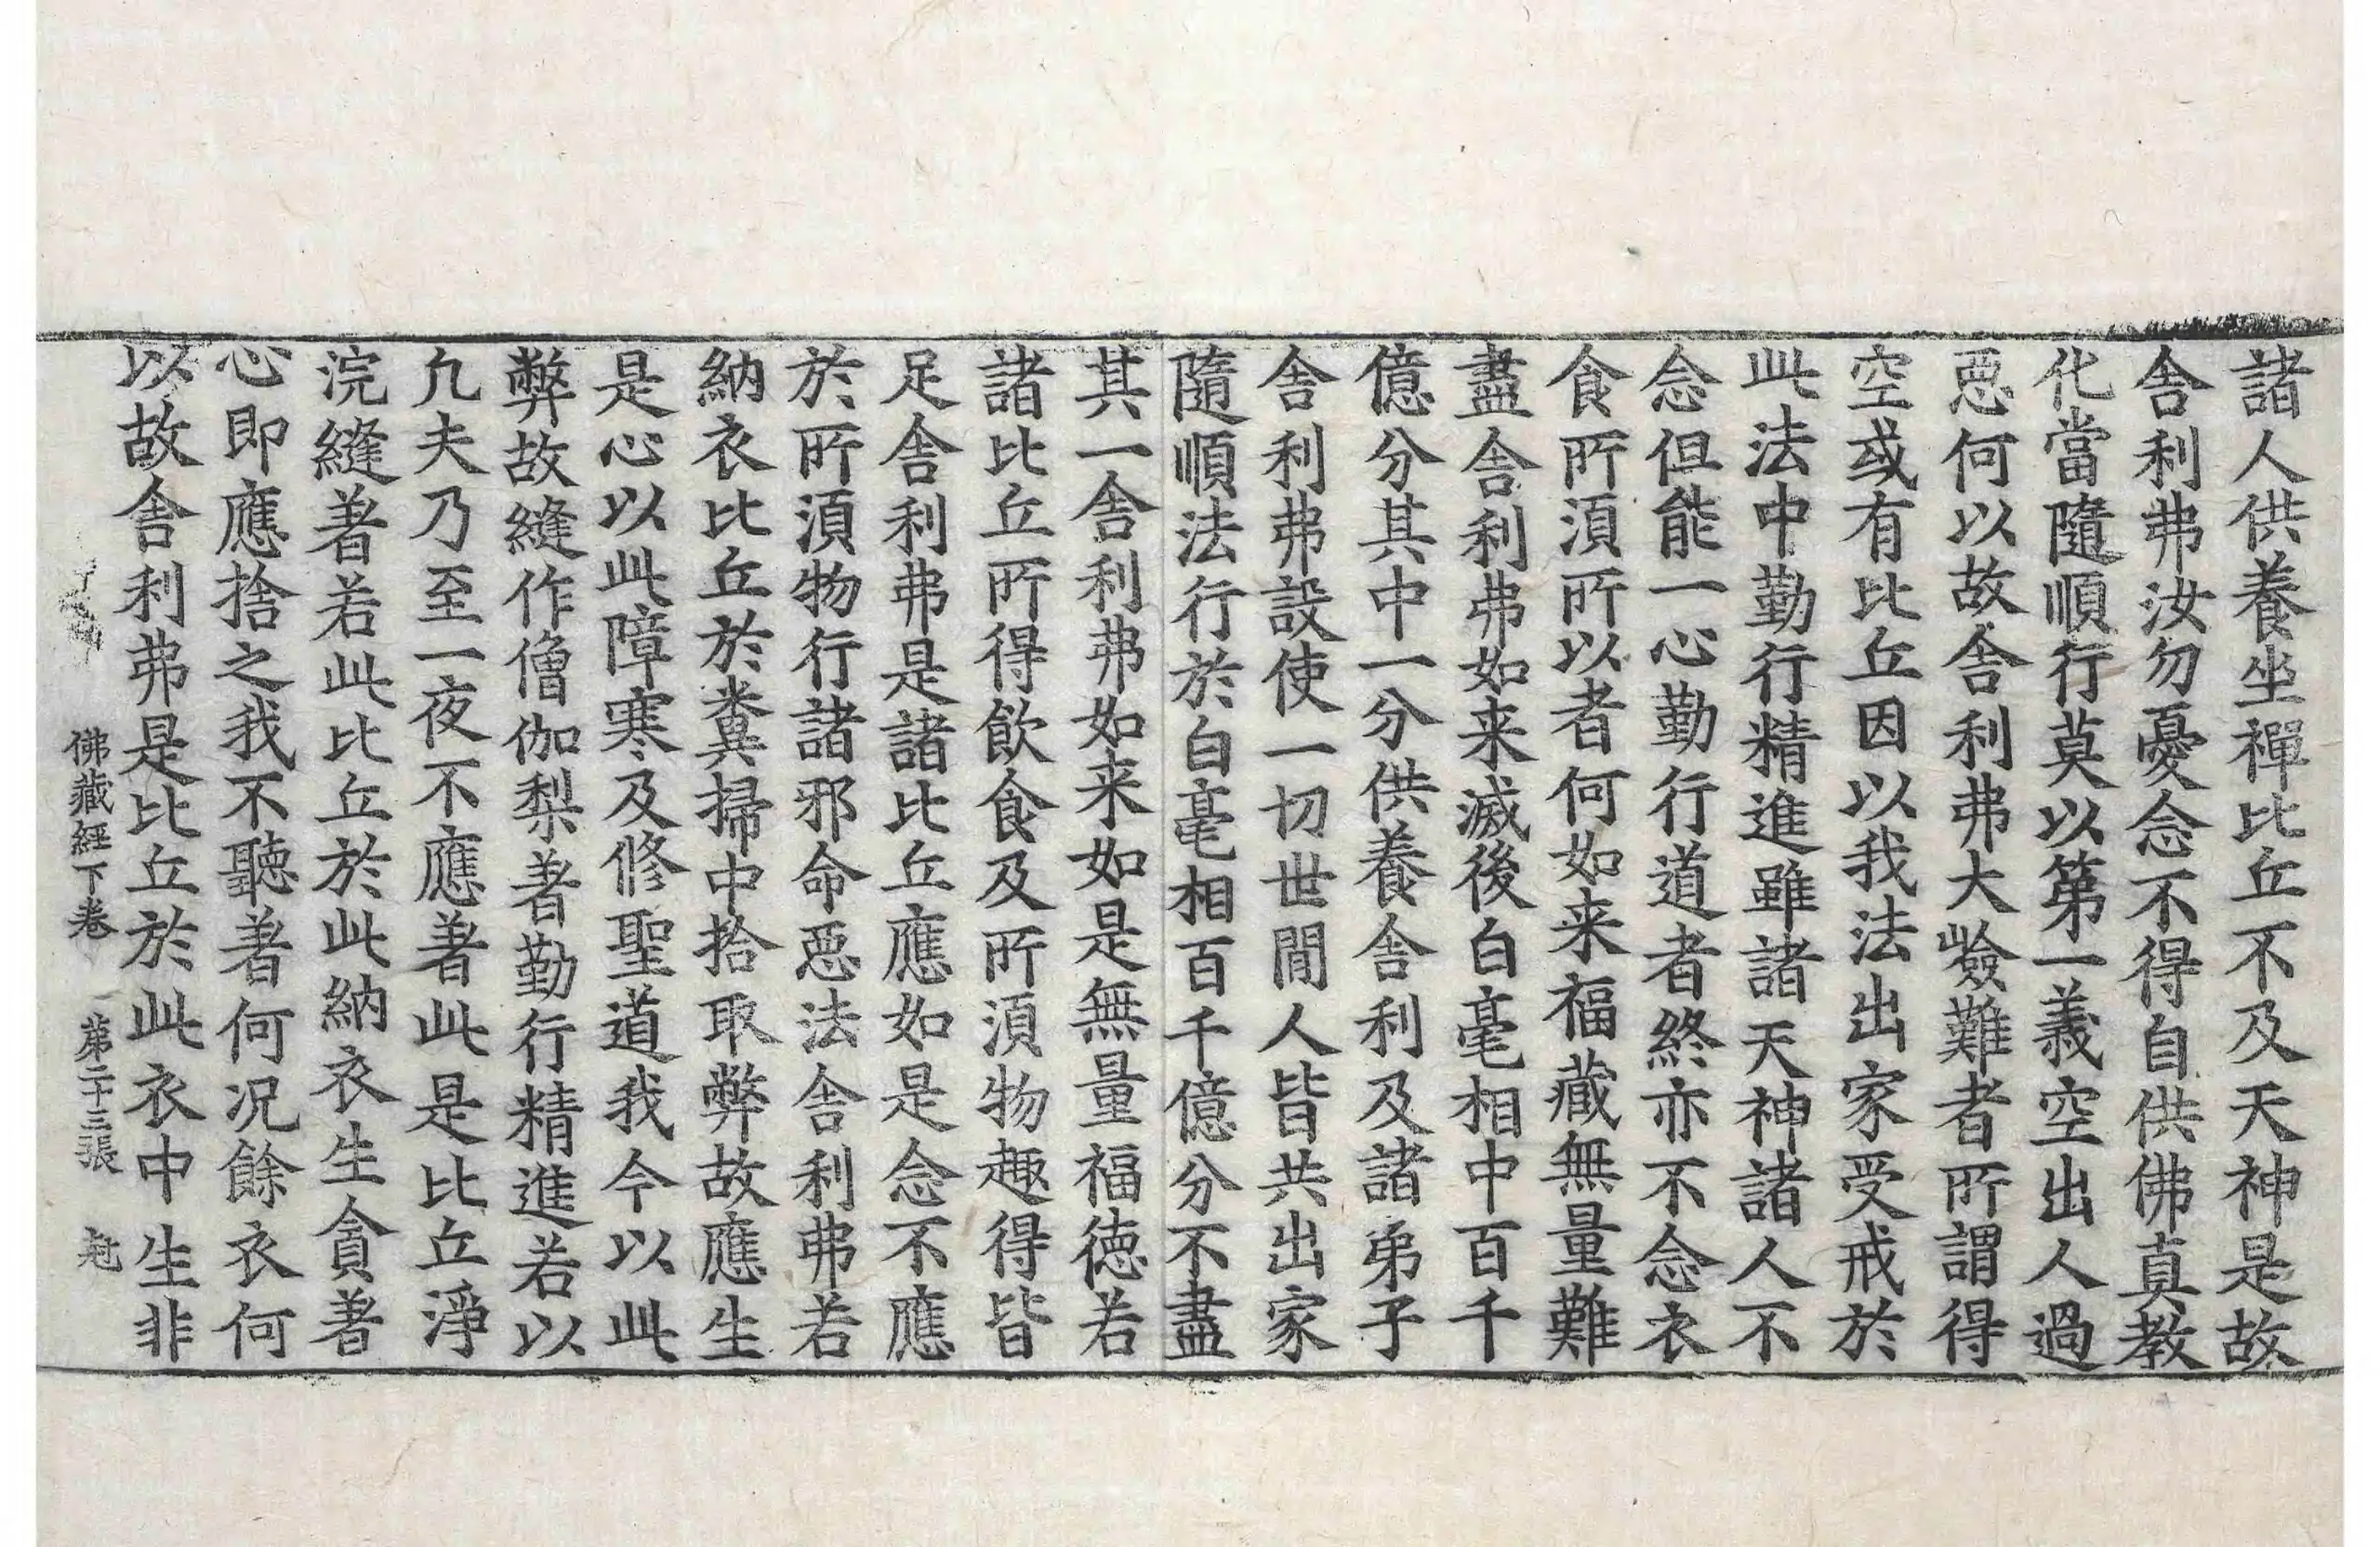 諸人供養坐禪比丘不及天神是故
舎利弗汝勿憂念不得自供佛真教
化當隨順行莫以第一義空出人過
惡何以故舎利弗大嶮難者所謂得
空或有比丘因以我法出家受戒於
此法中勤行精進雖諸天神諸人不
念但能一心勤行道者終亦不念衣
食所湏所以者何如来福藏無量難
盡舎利弗如来滅後白毫相中百千
億分其中一分供養舎利及諸弟子
舎利弗設使一切世間人皆共出家
隨順法行於白毫相百千億分不盡
其一舎利弗如来如是無量福德若
諸比丘所得飲食及所湏物趣得皆
足舎利弗是諸比丘應如是念不應
於所湏物行諸邪命惡法舎利弗若
納衣比丘於糞掃中拾取弊故應生
是心以此障寒及修聖道我今以此
弊故縫作僧伽梨著勤行精進若以
凢夫乃至一夜不應著此是比丘淨
浣縫著若此比丘於此納衣生貪著
心即應捨之我不聽著何況餘衣何
以故舎利弗是比丘於此衣中生非
佛藏經下卷 第二十三張